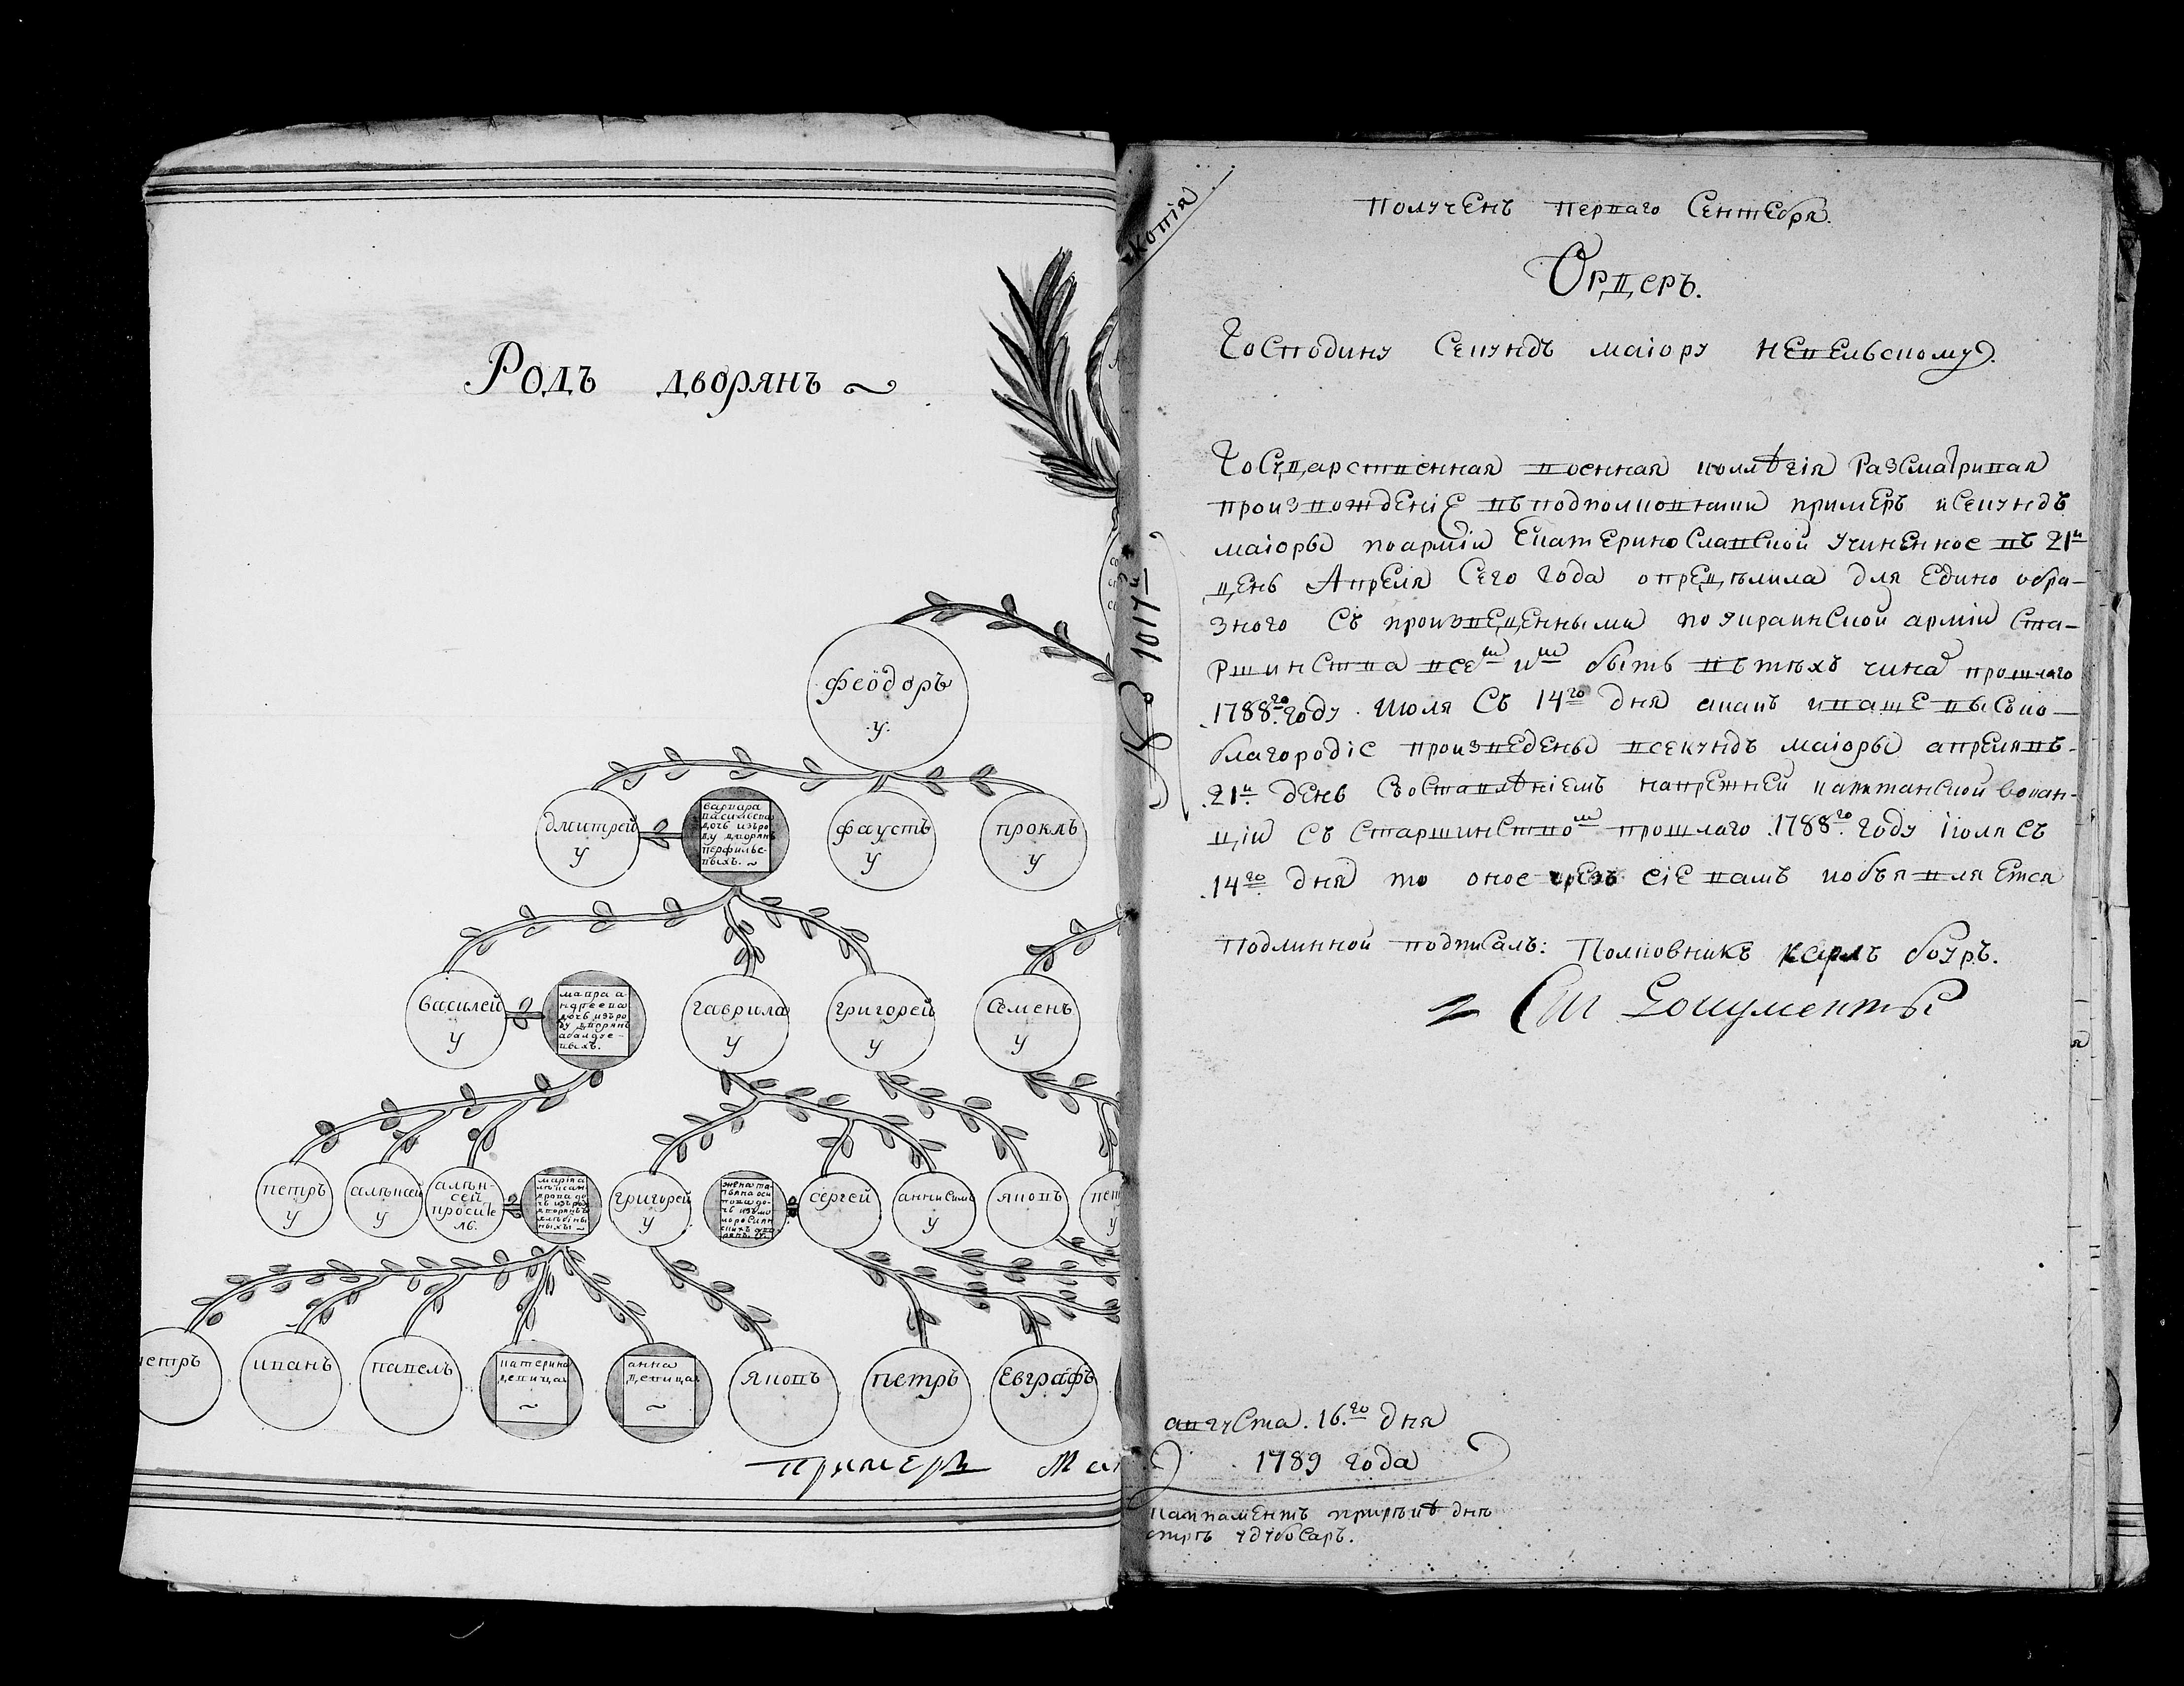 Родъ дворянъ
феодоръ
у
дмитрей
у
варвара
василевна
дочь изъро
ду дворянъ
перфилье-
выхъ.
фаустъ
у
проклъ
у
василей
у
мавра а
ндреевна
дочь изъро
ду дворянъ
гаврила
у
григорей
у
Семенъ
у
петръ
у
алѣксей
у
алѣк-
сей
григорей
у
жена та
тьяна оси
пова до-
сергей
аникимъ
у
яковъ
у
етръ
иванъ
павелъ
катерина
девица
анна
девица
яковъ
петръ
Евграфъ
примеръ Ма
копія
№ 1017й
Полученъ перваго Сентебря.
Ордеръ.
Господину Секундъ маіору
Государственная военная коллѣгія Разсматривая
произвожденіе въ подполковники примеръ иСекундъ
маіоры поарміи Екатеринославской Учиненное въ 21й
день Апреля Сего года опредѣлила для едино обра-
зного Съ произведенными поукраинской арміи Ста-
ршинства всем им быть вътѣхъ чина прошлаго
1788го году. Июля Съ 14го дня акакъ иваше высоко-
благородіе произведены всекундъ маіоры апрелявъ-
21й день Съоставлѣніемъ напрежней капитанской вокан-
ціи Съ старшинством прошлаго 1788го году Іюля Съ
14го дня то оное чрезъ сіе вамъ иобъявляется
Подлинной подписалъ: Полковникъ карлъ боуръ.
Си Документы
августа. 16.го дня
1789 года
Кампаментъ прирѣкѣ днѣ
стрѣ удубосаръ.